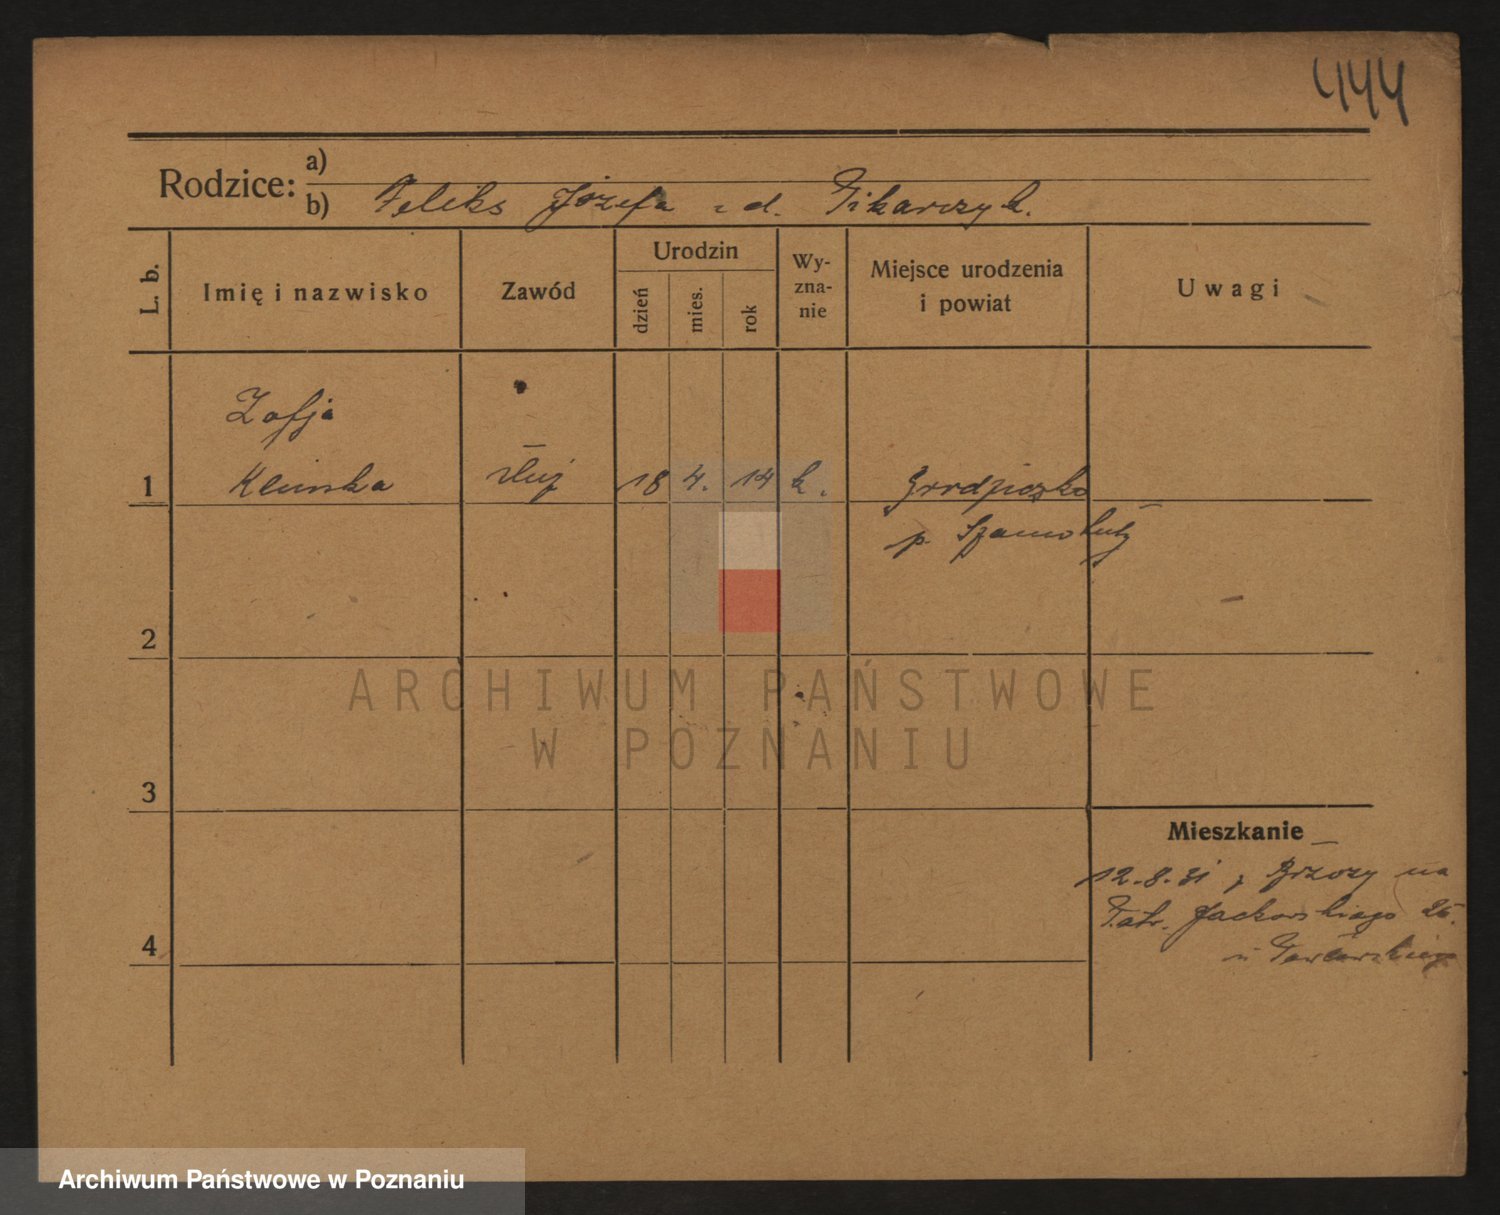 444
Rodzice: a)
b) Feliks Józefa z d. Pikarczyk.
L. b.
Imię i nazwisko
Zawód
Urodzin
dzień
mies.
rok
Wy-
zna-
nie
Miejsce urodzenia
i powiat
Uwagi
Zofja
1 Klimska służ 18 4. 14 k. Grodziszko
p. Szamotuły
2
3
4
Mieszkanie
12.8.31 z Brzozy na
Patr. Jackowskiego 25.
u
ARCHIWUM PAŃSTWOWE
W POZNANIU
Archiwum Państwowe w Poznaniu